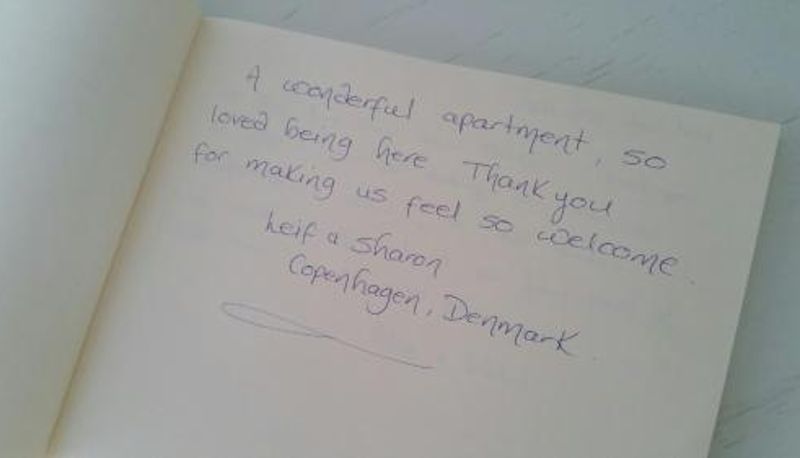 A wonderful apartment, so
loved being here Thank you
for making us feel so welcome.
Leif a Sharon
Copenhagen, Denmark.